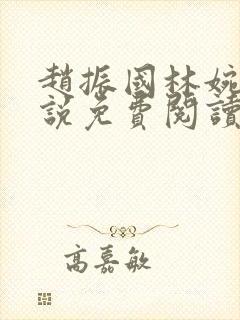 趙振國林婉
說免費閱讀
高嘉敏